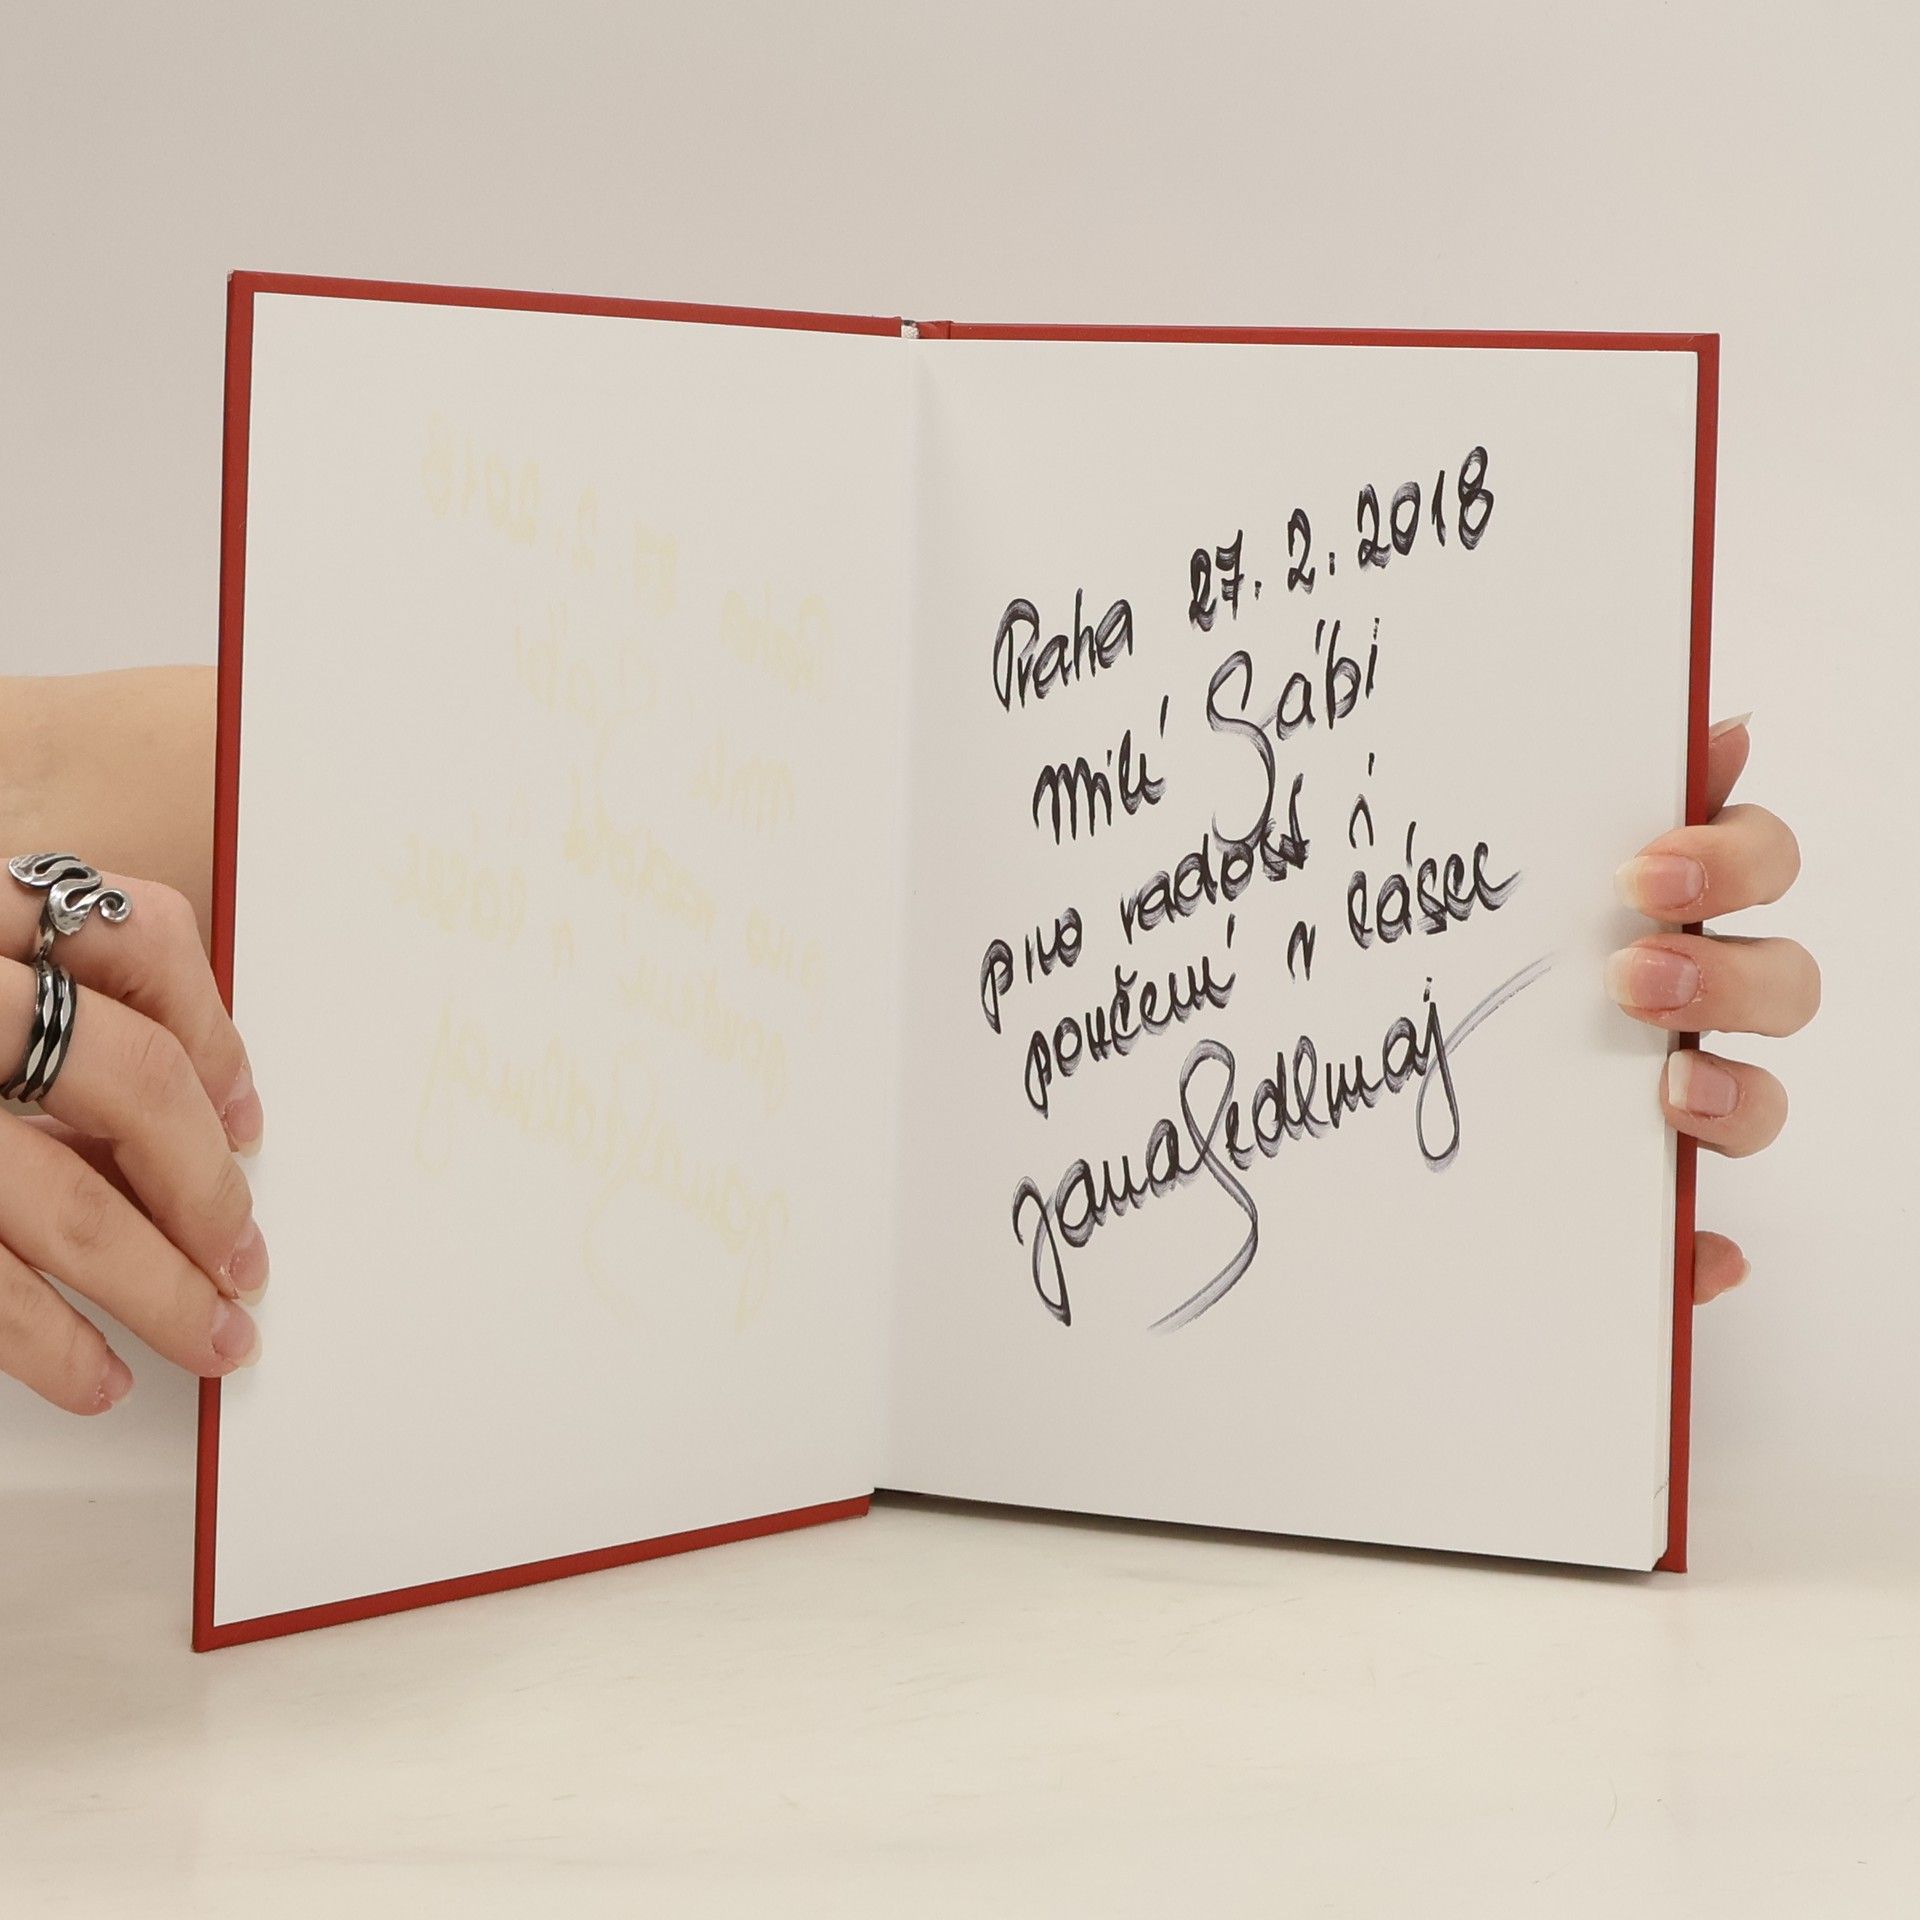 Praha 27. 2. 2018
Milí Sábi
radost i
poučení v lásce
Jana Sedlmaj